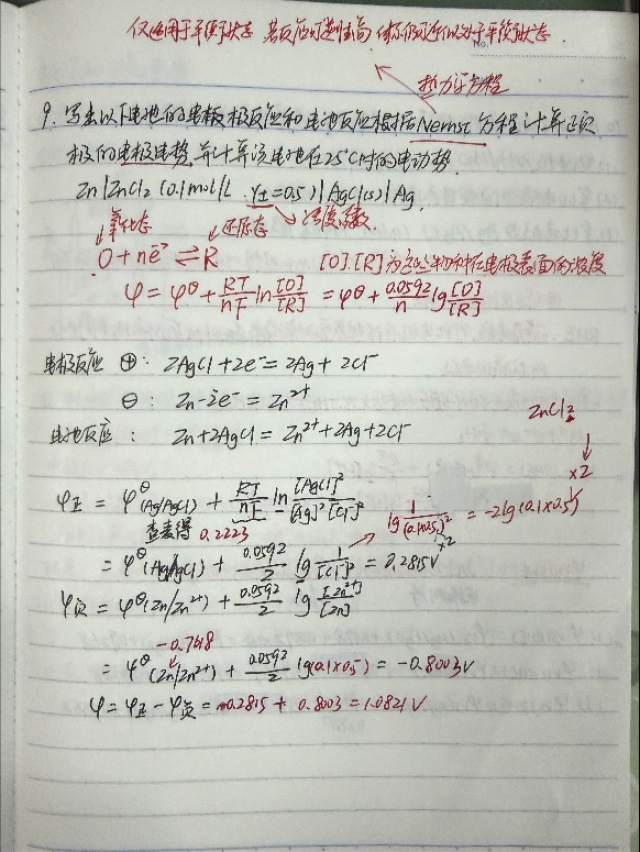 仅适用于平衡状态 若反应可逆性高 体系仍可近似处于平衡状态
No.
热力学方程
9. 写出以下电池的电极反应和电池反应根据Nernst方程计算正负
极的电极电势,并计算该电池在25℃时的电动势.
Zn|ZnCl2 (0.1mol/L γ±=0.5)|AgCl(s)|Ag.
氧化态 还原态 活度系数.
O+ne⁻⇌R [O].[R]为这些物种在电极表面的浓度
φ=φ^θ+RT/nF ln[O]/[R] =φ^θ+0.0592/n lg[O]/[R]
电极反应 ⊕: 2AgCl+2e⁻=2Ag+2Cl⁻
⊖: Zn-2e⁻=Zn²⁺
ZnCl2
电池反应: Zn+2AgCl=Zn²⁺+2Ag+2Cl⁻
×2
φ正=φ^θ(Ag/AgCl)+RT/nF ln[AgCl]²/[Ag]²[Cl⁻]²
查表得 0.2223
lg 1/(0.1×0.5)² =-2lg(0.1×0.5)
×2
=φ^θ(Ag/AgCl)+0.0592/2 lg 1/[Cl⁻]² =0.2815V
φ负=φ^θ(Zn/Zn²⁺)+0.0592/2 lg[Zn²⁺]/[Zn]
-0.7618
=φ^θ(Zn/Zn²⁺)+0.0592/2 lg(0.1×0.5)=-0.8003V
φ=φ正-φ负=0.2815+0.8003=1.0821V